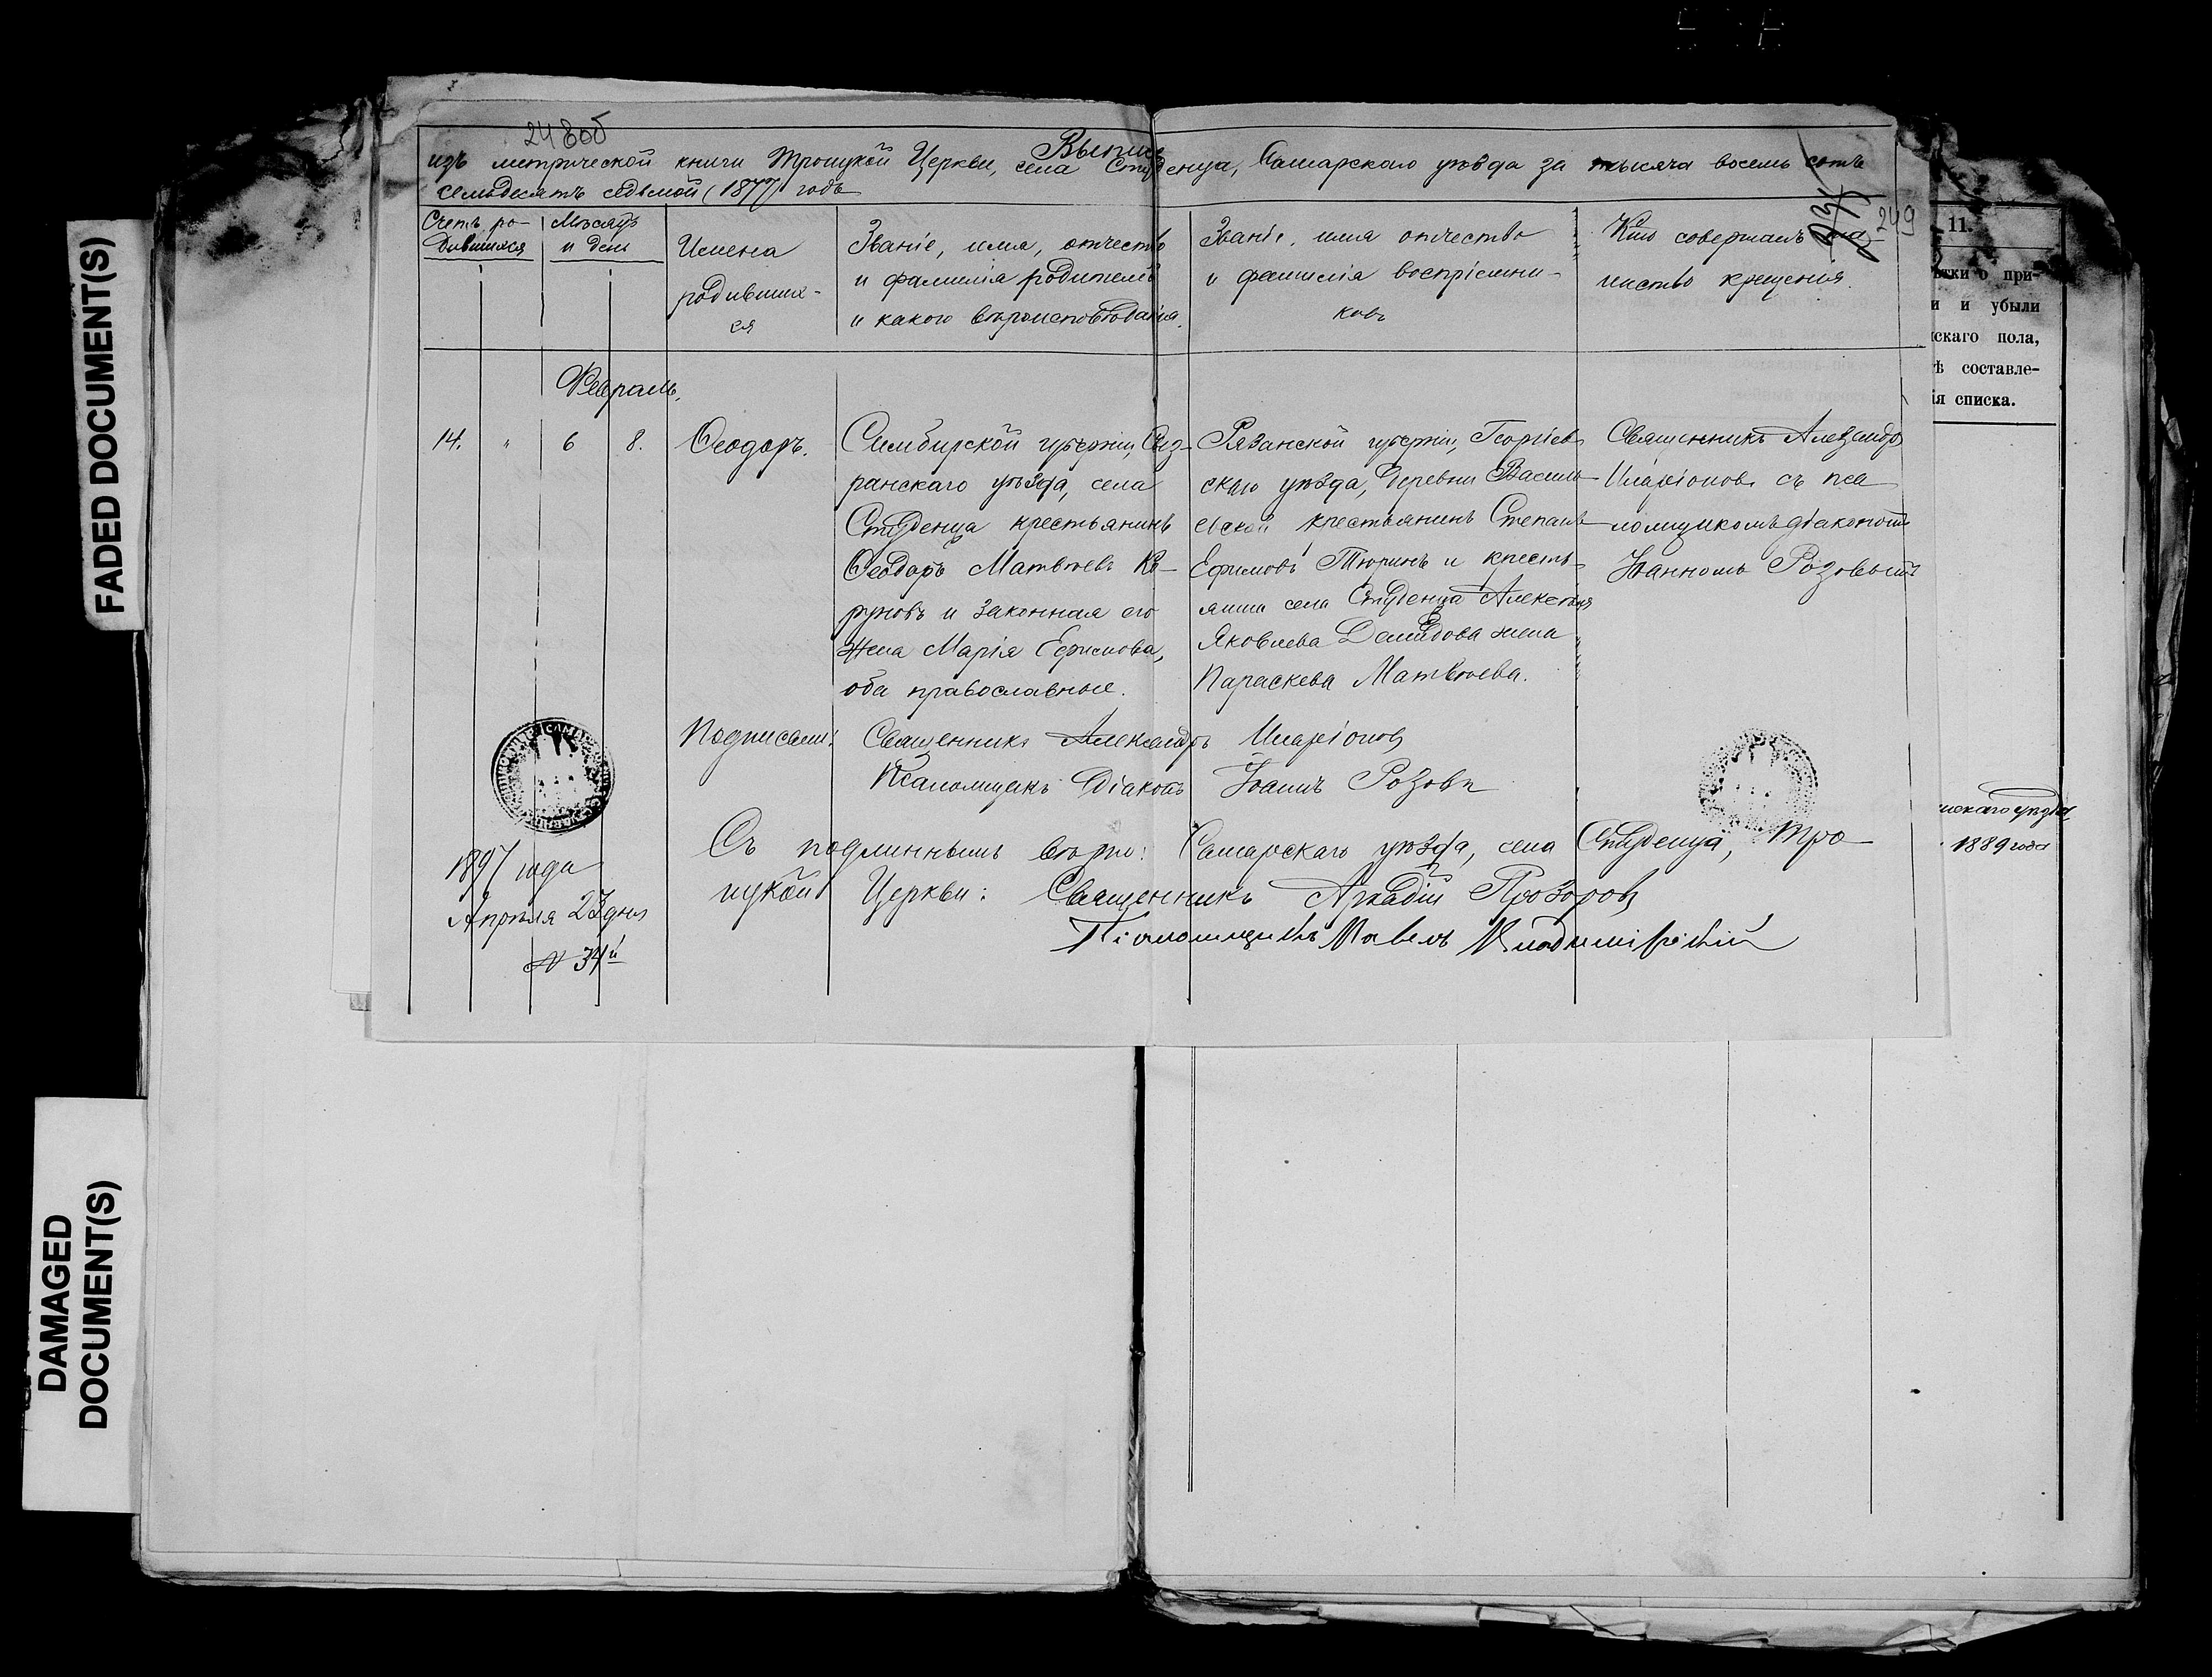 FADED DOCUMENT(S)
DAMAGED
DOCUMENT(S)
248об
Выпись
изъ метрической книги Троицкой Церкви, села Студенца, Самарскаго уѣзда за тысяча восемь сотъ
семьдесятъ седьмой (1877) годъ
249
Счетъ ро-
дившихся
Мѣсяцъ
и день
Имена
родивших-
ся
Званіе, имя, отчество
и фамилія родителей
и какого вѣроисповѣданія.
Званіе, имя отчество
и фамилія воспріемни-
ковъ
Кто совершалъ та-
инство крещенія.
Февраль.
14. " 6 8. Ѳеодоръ.
Симбирской губерніи, Сыз-
ранскаго уѣзда, села
Студенца крестьянинъ
Ѳеодоръ Матвѣевъ Ко-
руновъ и законная его
жена Марія Ефимова,
оба православные.
Рязанской губерніи,
скаго уѣзда, деревни Василь-
евской крестьянинъ Степанъ
Ефимовъ Тюринъ и кресть-
янина села Студенца Алексѣя
Яковлева Демидова жена
Параскева Матвѣева.
Священникъ Александръ
Иларіоновъ съ пса-
ломщикомъ діакономъ
Іоанномъ Розовымъ
Подписали: Священникъ Александръ Иларіоновъ
Псаломщикъ Діаконъ Іоаннъ Розовъ
Съ подлиннымъ вѣрно: Самарскаго уѣзда, села Студенца, Тро-
ицкой Церкви: Священникъ Аркадій Прозоровъ
Псаломщикъ Павелъ
1897 года
Апрѣля 23 дня
№ 34й
11.
тки о при-
и и убыли
скаго пола,
ѣ составле-
ія списка.
скаго уѣзда,
1889 года